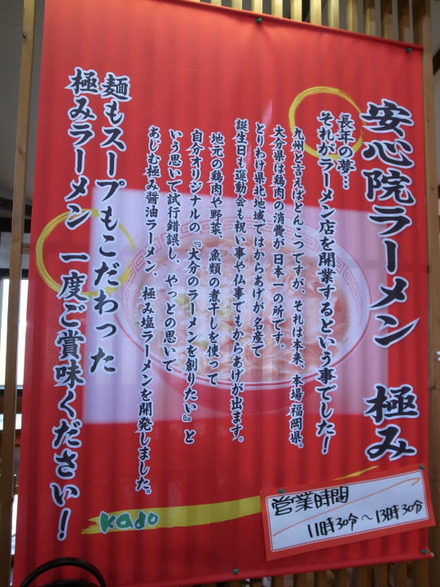 安心院ラーメン　極み
長年の夢…
それがラーメン店を開業するという事でした！
九州と言えばとんこつですが、それは本来、本場福岡県。
大分県は鶏肉の消費が日本一の所です。
とりわけ県北地域ではからあげが名産で
誕生日も運動会も祝い事や仏事でもからあげが出ます。
地元の鶏肉や野菜、魚類の煮干しを使って
自分オリジナルの『大分のラーメンを創りたい』と
いう思いで試行錯誤し、やっとの思いで
あじむ極み醤油ラーメン、極み塩ラーメンを開発しました。
麺もスープもこだわった
極みラーメン　一度ご賞味ください！
kado
営業時間
11時30分～13時30分